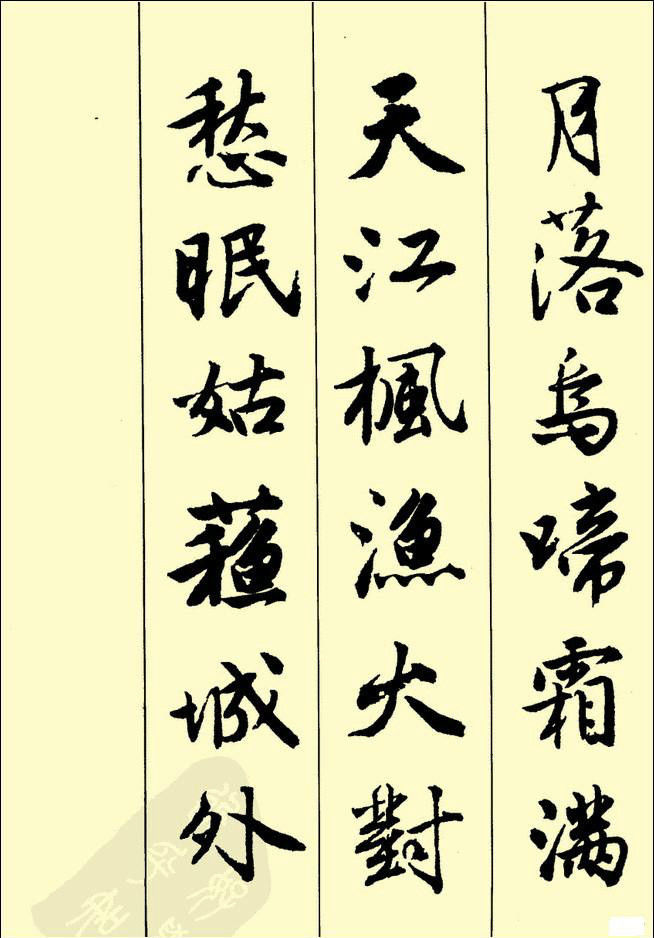 月落烏啼霜满
天江楓漁火對
愁眠姑蘓城外